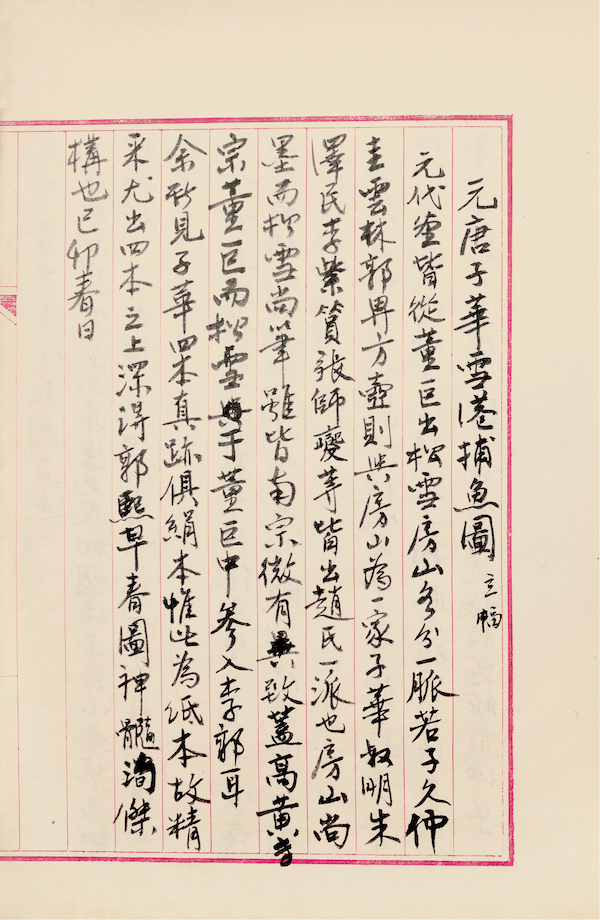 元唐子華雪港捕魚圖 立幅
元代畫皆從董巨出松雪房山各分一脈若子久仲
圭雲林郭畀方壺則與房山為一家子華叔明朱
澤民李紫篔張師夔等皆出趙氏一派也房山尚
墨而松雪尚筆雖皆南宗微有異致蓋高黃專
宗董巨而松雪與于董巨中參入李郭耳
余所見子華四本真跡俱絹本惟此為紙本故精
采尤出四本之上深得郭熙早春圖神髓洵傑
構也己卯春日